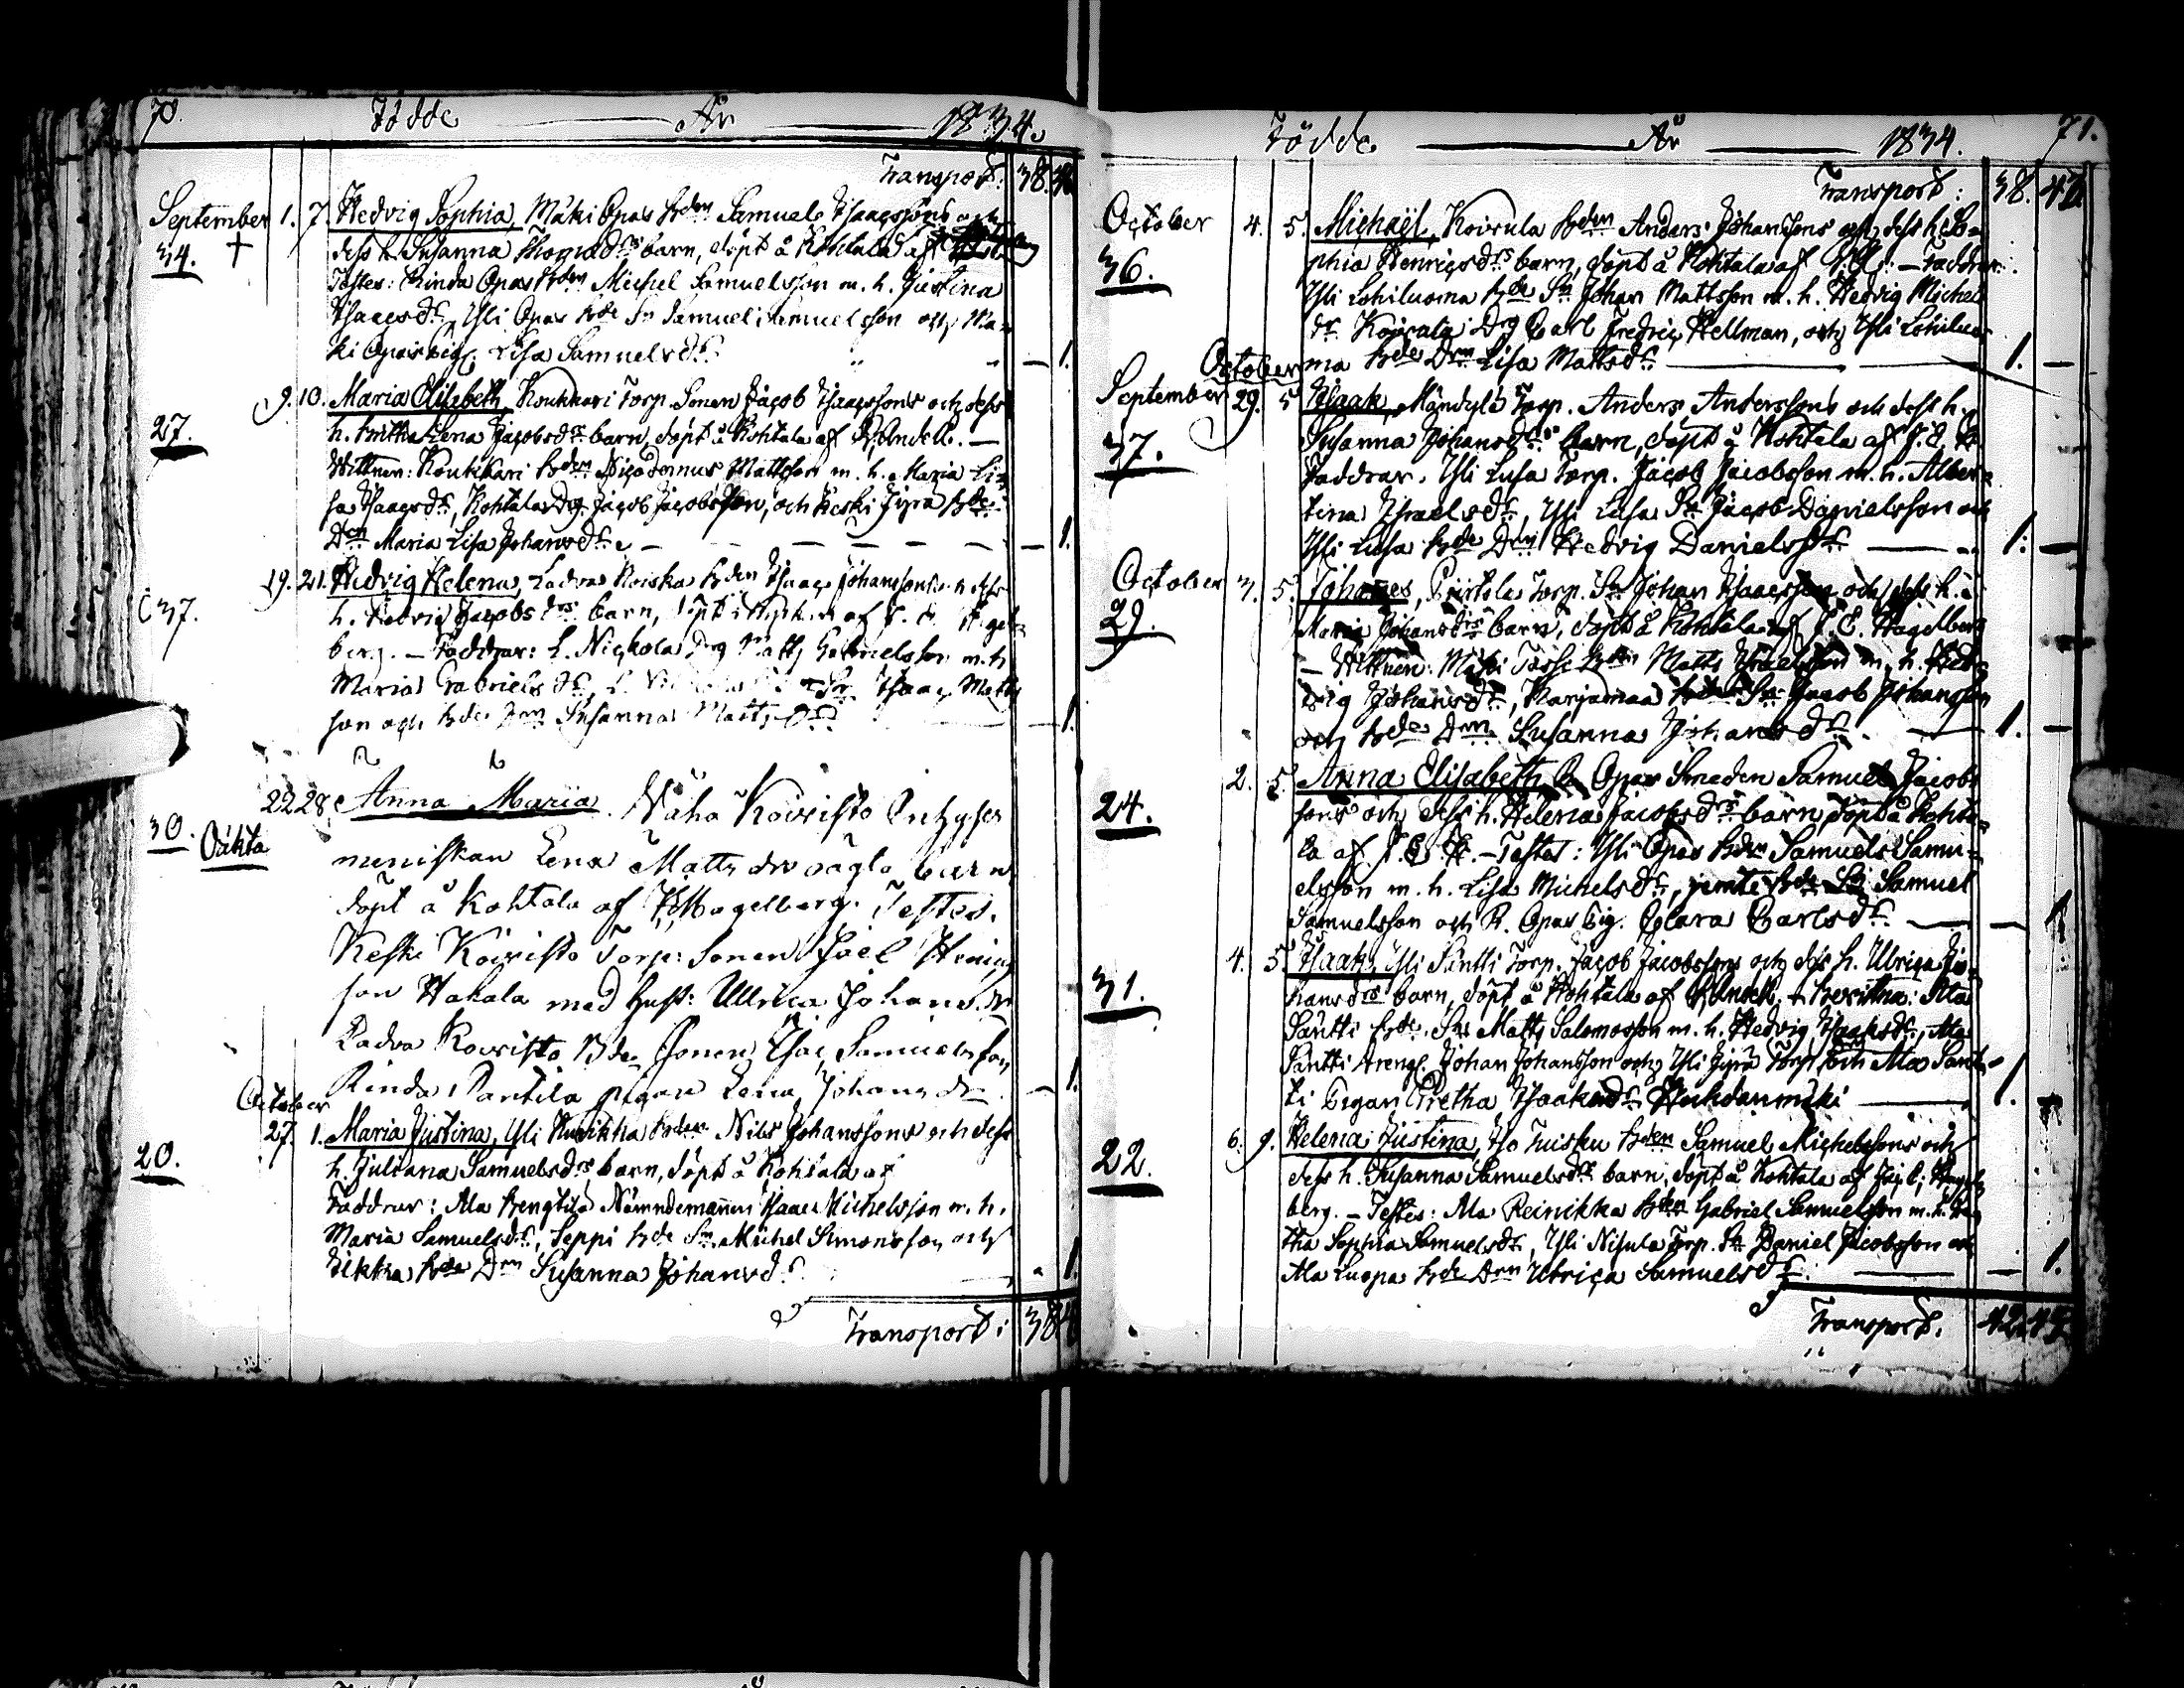 70. Födde År 1834.
Transport: 38.
September 1. 7. Hedvig Sophia, Mäki Opas Bden Samuel Isaacssons och
34. † dess h. Susanna Thomædrs barn, döpt å Kohtala af
Testes: Rinda Opas Bden Michel Samuelsson m. h. Justina
Isaacsdr, Yli Opas Bde Sn Samuel Samuelsson och Mä-
ki Opas pig. Lisa Samuelsdr. — 1.
9. 10. Maria Elisabeth, Koukkari Torp. Sonen Jacob Isaacssons och dess
27. h. Britha Lena Jacobsdrs barn, döpt å Kohtala af —
Wittnen: Koukkari Bden Nicodemus Mattsson m. h. Maria Li-
sa Isaacsdr, Kohtala Dg Jacob Jacobsson, och Keski Jyra Bde
Drn Maria Lisa Johansdr. — 1.
19. 21. Hedvig Helena, Ladva Koiska Bden Isaac Johanssons och dess
37. h. Hedvig Jacobsdrs barn, döpt i Kyrkan af Hagel-
berg. — Faddrar: L. Nickola Dg Matts Gabrielsson m. h.
Maria Gabrielsdr, L. Isaac Matts
son och Bde Drn Susanna Mattsdr — 1.
22 28 Anna Maria Näho Koivisto Inhyses
30. Oäkta menniskan Lena Matts dr oägta barn
döpt å Kohtala af Hagelberg. Testes.
Keski Koivisto Torp: Sonen Joel Henrics
son Hakala med Hust: Ullrica Johans dr
Ladva Koivisto Bde Sonen Isac Samuelsson
Rinda Pantila pigan Lena Johans dr — 1.
October
27 1. Maria Justina, Yli Reinikka Bden Nils Johanssons och dess
20. h. Juliana Samuelsdrs barn, döpt å Kohtala af
Faddrar: Ala Bengtila Nämndemannen Isaac Michelsson m. h.
Maria Samuelsdr, Seppi Bde Sn Michel Simonsson och
Ukkra Bde Drn Susanna Johansdr. 1
Transport: 38
Födde År 1834. 71.
Transport: 38. 42
October 4. 5. Michaël, Koivula Bden Anders Johanssons och dess h. So-
36. phia Henricsdrs barn, döpt å Kohtala af — Faddrar:
Yli Lohiluoma Bde Sn Johan Mattsson m. h. Hedvig Michels
dr Koivula Dg Carl Fredric Hellman, och Yli Lohiluo-
October ma Bde Drn Lisa Mattsdr. — 1. —
September 29. 5 Isaak, Mändylä Torp. Anders Anderssons och dess h.
37. Susanna Johansdrs barn, döpt å Kohtala af J. E. H.
Faddrar. Yli Lusa Torp. Jacob Jacobsson m. h. Alber-
tina Israelsdr, Yli Lusa Sn Jacob Danielsson och
Yli Lusa Bde Drn Hedvig Danielsdr — 1. —
October 3. 5. Johannes, Piirtola Torp. Sn Johan Isaacsson och dess h.
29. Maria Johansdrs barn, döpt å Kohtala af J. E. Hagelberg
— Wittnen: Mäki Bden Matts Israelsson m. h. Hed-
vig Johansdr, Karjamaa Bde Sn Jacob Johansson
och Bde Drn Susanna Johansdr. — 1. —
2. 5. Anna Elisabeth R. Opas Smeden Samuel Jacobs
24. sons och dess h. Helena Jacobsdrs barn, döpt å Kohta-
la af J. E. H. — Testes: Yli Opas Bden Samuel Samu-
elsson m. h. Lisa Michelsdr, jemte Bde Sn Samuel
Samuelsson och R. Opas Pig. Clara Carlsdr. — 1
4. 5. Isaak, Yli Säntti Torp. Jacob Jacobssons och dess h. Ulrica Jo-
31. hansdrs barn, döpt å Kohtala af — Bevittna: Ala
Säntti Bde. Sn Matts Salomosson m. h. Hedvig Isaaksdr, Ala
Säntti dreng. Johan Johansson och Yli Jyrä Torp. och Ala Sänt-
ti Pigan Gretha Isaaksdr Huhdanmäki — 1.
6. 9. Helena Justina, Iso Tuisku Bden Samuel Michelssons och
22. dess h. Susanna Samuelsdrs barn, döpt å Kohtala af Hagel-
berg. — Testes: Ala Reinikka Bden Gabriel Samuelsson m. h. Bri-
tha Sophia Samuelsdr, Yli Nisula Torp. Sn Daniel Jacobsson och
Ala Luopa Bde Drn Ulrica Samuelsdr. — 1.
Transport. 42.